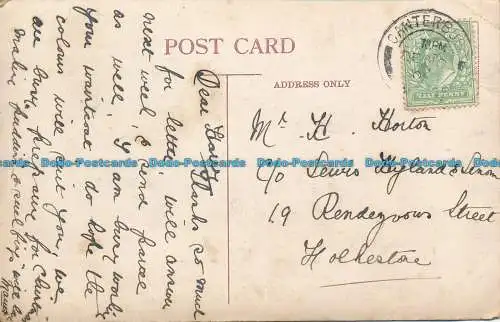 POST CARD
ADDRESS ONLY
CANTERBURY
HALFPENNY
Mr. H. Horton
c/o Lewis Hyland &
19 Rendezvous Street
Folkestone
Dear Harry
Thanks so much
for letter will answer
next week & send parcel
as well. I am busy making
you waistcoat do hope the
colour will suit you, we
are busy prepare for
making
Dodo-Postcards Dodo-Postcards Dodo-Postcards Dodo-Postcards Dodo-Postcards